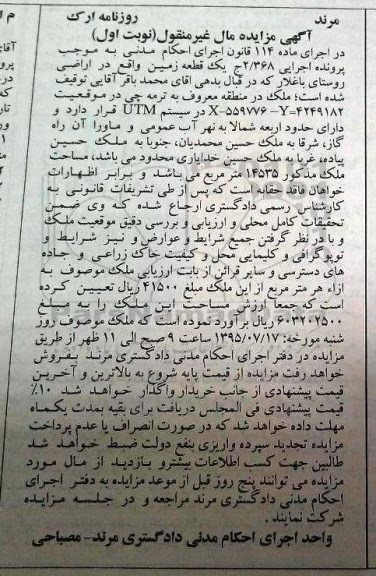 مرند روزنامه ارک
آگهی مزایده مال غیرمنقول(نوبت اول)
در اجرای ماده ۱۱۴ قانون اجرای احکام مدنی به موجب
پرونده اجرایی ۲/۳۶۸ج یک قطعه زمین واقع در اراضی
روستای باغلار که در قبال بدهی آقای محمد باقر آقایی توقیف
شده است؛ ملک در منطقه معروف به ترمه چی در موقعیت
X-۵۵۹۷۷۶ -Y=۴۲۴۹۱۸۲ در سیستم UTM قرار دارد و
دارای حدود اربعه شمالا به نهر آب عمومی و ماورا آن راه
گاز، شرقا به ملک حسین محمدیان، جنوبا به ملک حسین
پیاده، غربا به ملک حسین خدایاری محدود می باشد، مساحت
ملک مذکور ۱۴۵۳۵ متر مربع می باشد و برابر اظهارات
خواهان فاقد حقابه است که پس از طی تشریفات قانونی به
کارشناس رسمی دادگستری ارجاع شده که وی ضمن
تحقیقات کامل محلی و ارزیابی و بررسی دقیق موقعیت ملک
و با در نظر گرفتن جمیع شرایط و عوارض و نیز شرایط و
توپوگرافی و کلیمایی محل و کیفیت خاک زراعی و جاده
های دسترسی و سایر قرائن از بابت ارزیابی ملک موصوف به
ازاء هر متر مربع از این ملک مبلغ ۴۱۵۰۰ ریال تعیین کرده
است که جمعا ارزش مساحت این ملک را به مبلغ
۶۰۳۲۰۲۵۰۰ ریال برآورد نموده است که ملک موصوف روز
شنبه مورخه: ۱۳۹۵/۰۷/۱۷ ساعت ۹ صبح الی ۱۱ ظهر از طریق
مزایده در دفتر اجرای احکام مدنی دادگستری مرند بفروش
خواهد رفت مزایده از قیمت پایه شروع به بالاترین و آخرین
قیمت پیشنهادی از جانب خریدار واگذار خواهد شد ۱۰٪
قیمت پیشنهادی فی المجلس دریافت برای بقیه بمدت یکماه
مهلت داده خواهد شد که در صورت انصراف یا عدم پرداخت
مزایده تجدید سپرده واریزی بنفع دولت ضبط خواهد شد
طالبین جهت کسب اطلاعات بیشترو بازدید از مال مورد
مزایده می توانند پنج روز قبل از موعد مزایده به دفتر اجرای
احکام مدنی دادگستری مرند مراجعه و در جلسه مزایده
شرکت نمایند .
واحد اجرای احکام مدنی دادگستری مرند- مصباحی